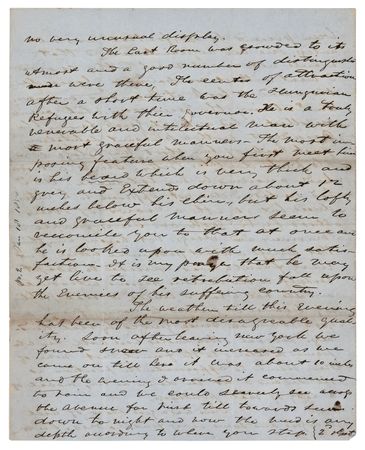 no very unusual display.
The East Room was crowded to its
utmost and a good number of distinguished
men were there. The center of attraction
after a short time was the Hungarian
Refugees with their governor. He is a truly
venerable and intelectual man with
a most graceful manners. The most im
posing feature when you first meet him
is his beard which is very thick and
grey and Extends down about 12
inches below his chin, but his lofty
and graceful manners seem to
reconcile you to that at once and
he is looked upon with much satis
faction. It is my prayer that he may
get live to see retribution fall upon
the Enemies of his suffering country.
The weather till this Evening
has been of the most disagreeable qual
ity. Soon after leaving new york we
found snow and it increased as we
came on till here it was about 10 inches
and the evening I arrived it commenced
to rain and we could scarcely see across
the avenue for mist till towards sun
down to night and now the mud is any
depth according to where you step.